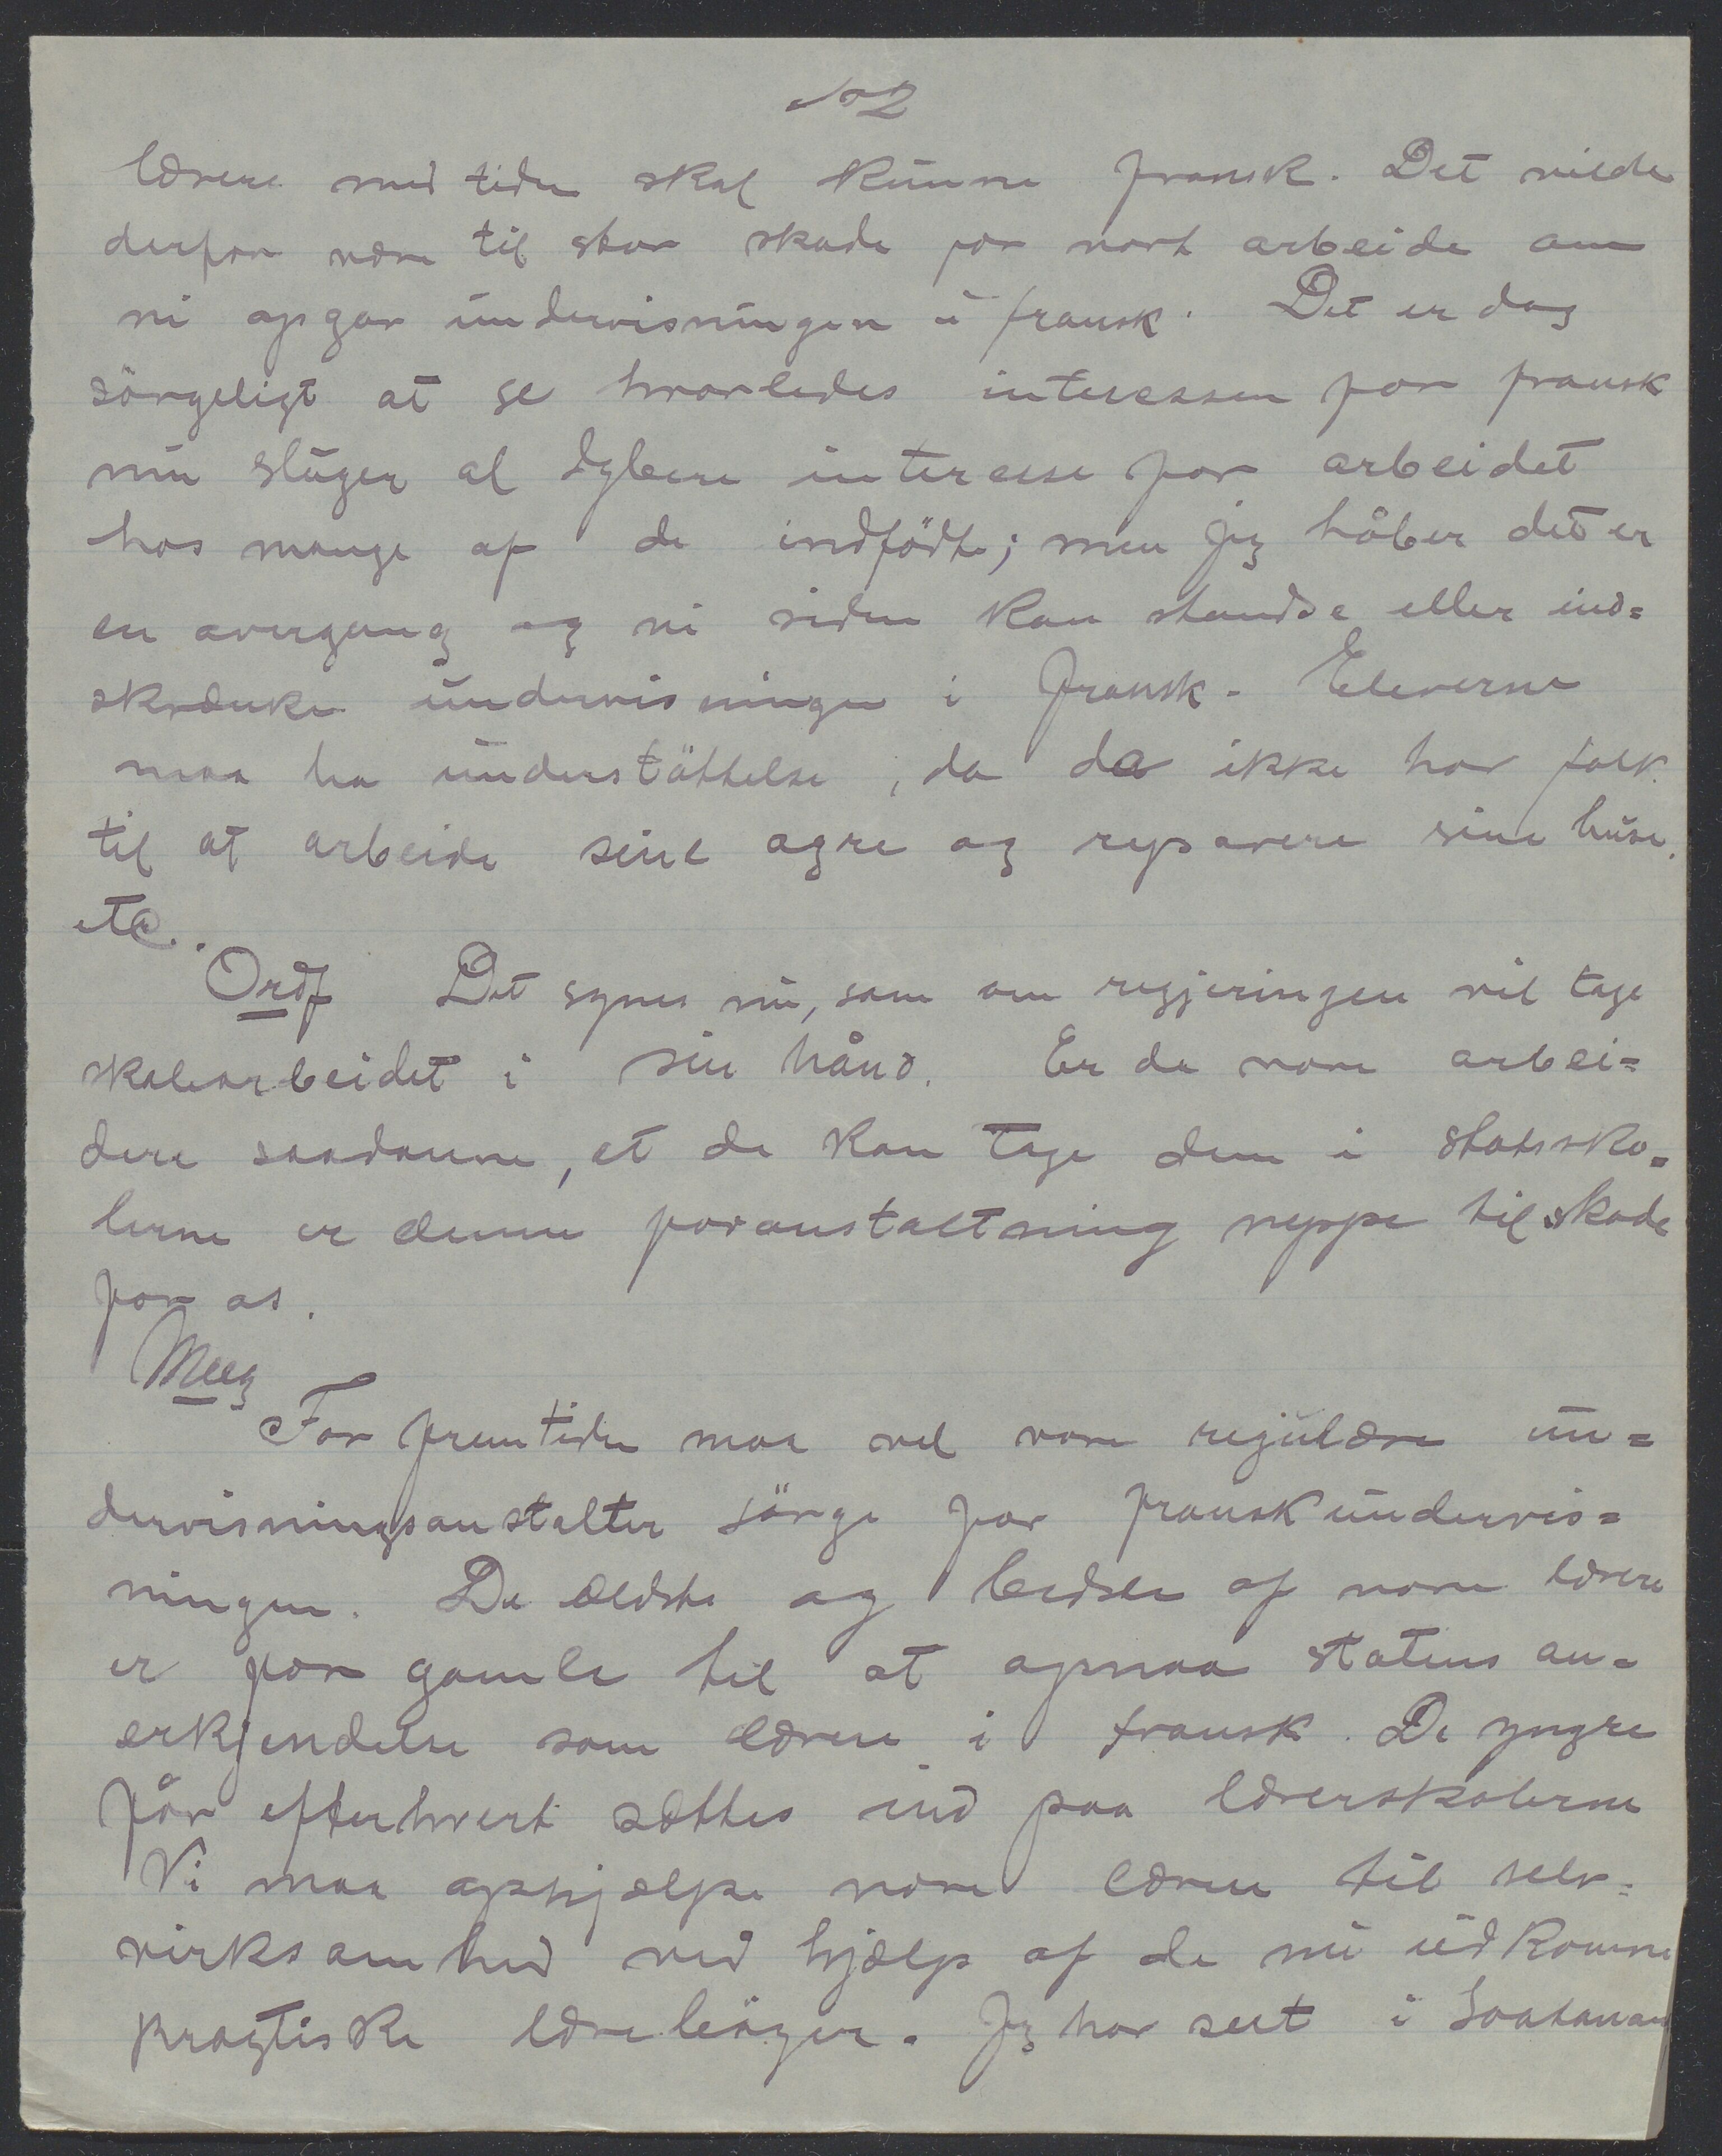 No 2
lærere med tiden skal kunne fransk. Det vilde
derfor være til stor skade for vort arbeide om
vi opgav undervisningen i fransk. Det er dog
sörgeligt at se hvorledes interessen for fransk
nu sluger al dybere interesse for arbeidet
hos mange af de indfödte; men jeg håber det er
en overgang og vi siden kan standse eller ind=
skrænke undervisningen i fransk. Eleverne
maa ha understöttelse, da de ikke har folk
til at arbeide sine agre og reparere sine huse.
etc.
Ordf Det synes nu, som om regjeringen vil tage
skolearbeidet i sin hånd. Er de vore arbei=
dere saadanne, at de kan tage dem i statssko=
lerne er denne foranstaltning neppe til skade
for os.
Meeg
For fremtiden maa vel vore regulære un=
dervisningsanstalter sörge for franskundervis=
ningen. De ældste og bedste af vore lærere
er for gamle til at opnaa statens an=
erkjendelse som lærere i fransk. De yngre
får efterhvert sættes ind paa lærerskolerne
Vi maa ophjælpe vore lærere til selv=
virksomhed ved hjælp af de nu udkomne
pragtiske læreböger. Jeg har seet i Soatanan